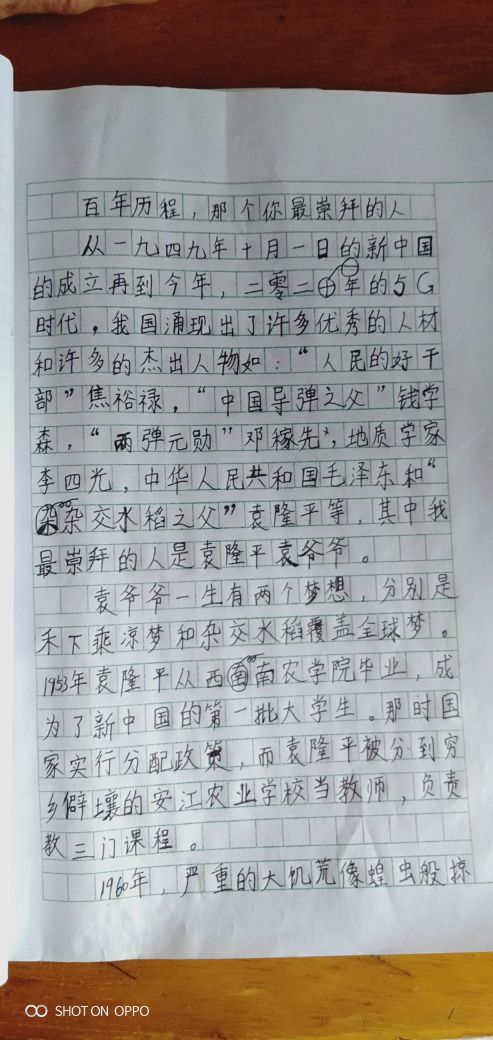 百年历程，那个你最崇拜的人
从一九四九年十月一日的新中国
的成立再到今年，二零二年的5G
时代，我国涌现出了许多优秀的人材
和许多的杰出人物如：“人民的好干
部”焦裕禄，“中国导弹之父”钱学
森，“两弹元勋”邓稼先，地质学家
李四光，中华人民共和国毛泽东和“
杂交水稻之父”袁隆平等，其中我
最崇拜的人是袁隆平袁爷爷。
袁爷爷一生有两个梦想，分别是
禾下乘凉梦和杂交水稻覆盖全球梦。
1953年袁隆平从西南农学院毕业，成
为了新中国的第一批大学生。那时国
家实行分配政策，而袁隆平被分到穷
乡僻壤的安江农业学校当教师，负责
教三门课程。
1960年，严重的大饥荒像蝗虫般掠
SHOT ON OPPO